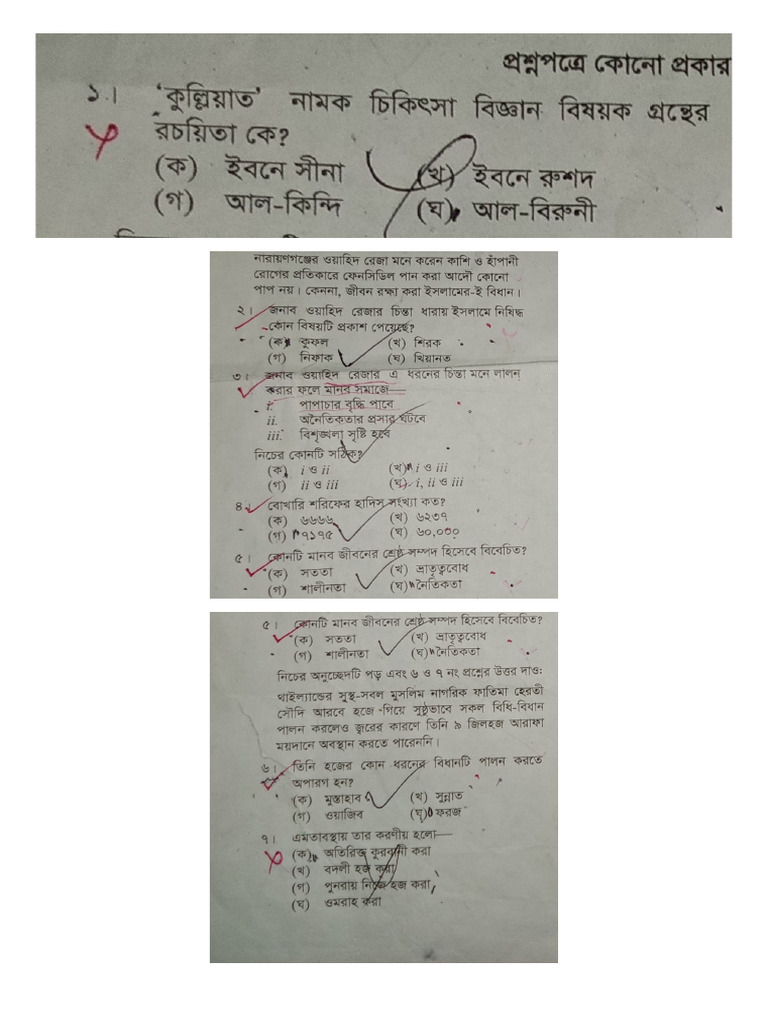 প্রশ্নপত্রে কোনো প্রকার
১। ‘কুল্লিয়াত’ নামক চিকিৎসা বিজ্ঞান বিষয়ক গ্রন্থের
রচয়িতা কে?
(ক) ইবনে সীনা (খ) ইবনে রুশদ
(গ) আল-কিন্দি (ঘ) আল-বিরুনী
নারায়ণগঞ্জের ওয়াহিদ রেজা মনে করেন কাশি ও হাঁপানী
রোগের প্রতিকারে ফেনসিডিল পান করা আদৌ কোনো
পাপ নয়। কেননা, জীবন রক্ষা করা ইসলামের-ই বিধান।
২। জনাব ওয়াহিদ রেজার চিন্তা ধারায় ইসলামে নিষিদ্ধ
কোন বিষয়টি প্রকাশ পেয়েছে?
(ক) কুফল (খ) শিরক
(গ) নিফাক (ঘ) খিয়ানত
৩। জনাব ওয়াহিদ রেজার এ ধরনের চিন্তা মনে লালন
করার ফলে মানব সমাজে—
i. পাপাচার বৃদ্ধি পাবে
ii. অনৈতিকতার প্রসার ঘটবে
iii. বিশৃঙ্খলা সৃষ্টি হবে
নিচের কোনটি সঠিক?
(ক) i ও ii (খ) i ও iii
(গ) ii ও iii (ঘ) i, ii ও iii
৪। বোখারি শরিফের হাদিস সংখ্যা কত?
(ক) ৬৬৬৬ (খ) ৬২৩৭
(গ) ৭১৭৫ (ঘ) ৬০,০০০
৫। কোনটি মানব জীবনের শ্রেষ্ঠ সম্পদ হিসেবে বিবেচিত?
(ক) সততা (খ) ভ্রাতৃত্ববোধ
(গ) শালীনতা (ঘ) নৈতিকতা
৫। কোনটি মানব জীবনের শ্রেষ্ঠ সম্পদ হিসেবে বিবেচিত?
(ক) সততা (খ) ভ্রাতৃত্ববোধ
(গ) শালীনতা (ঘ) নৈতিকতা
নিচের অনুচ্ছেদটি পড় এবং ৬ ও ৭ নং প্রশ্নের উত্তর দাও:
থাইল্যান্ডের সুস্থ-সবল মুসলিম নাগরিক ফাতিমা হেরতী
সৌদি আরবে হজে গিয়ে সুষ্ঠুভাবে সকল বিধি-বিধান
পালন করলেও জ্বরের কারণে তিনি ৯ জিলহজ আরাফা
ময়দানে অবস্থান করতে পারেননি।
৬। তিনি হজের কোন ধরনের বিধানটি পালন করতে
অপারগ হন?
(ক) মুস্তাহাব (খ) সুন্নাত
(গ) ওয়াজিব (ঘ) ফরজ
৭। এমতাবস্থায় তার করণীয় হলো—
(ক) অতিরিক্ত কুরবানী করা
(খ) বদলী হজ করা
(গ) পুনরায় নিজে হজ করা
(ঘ) ওমরাহ করা